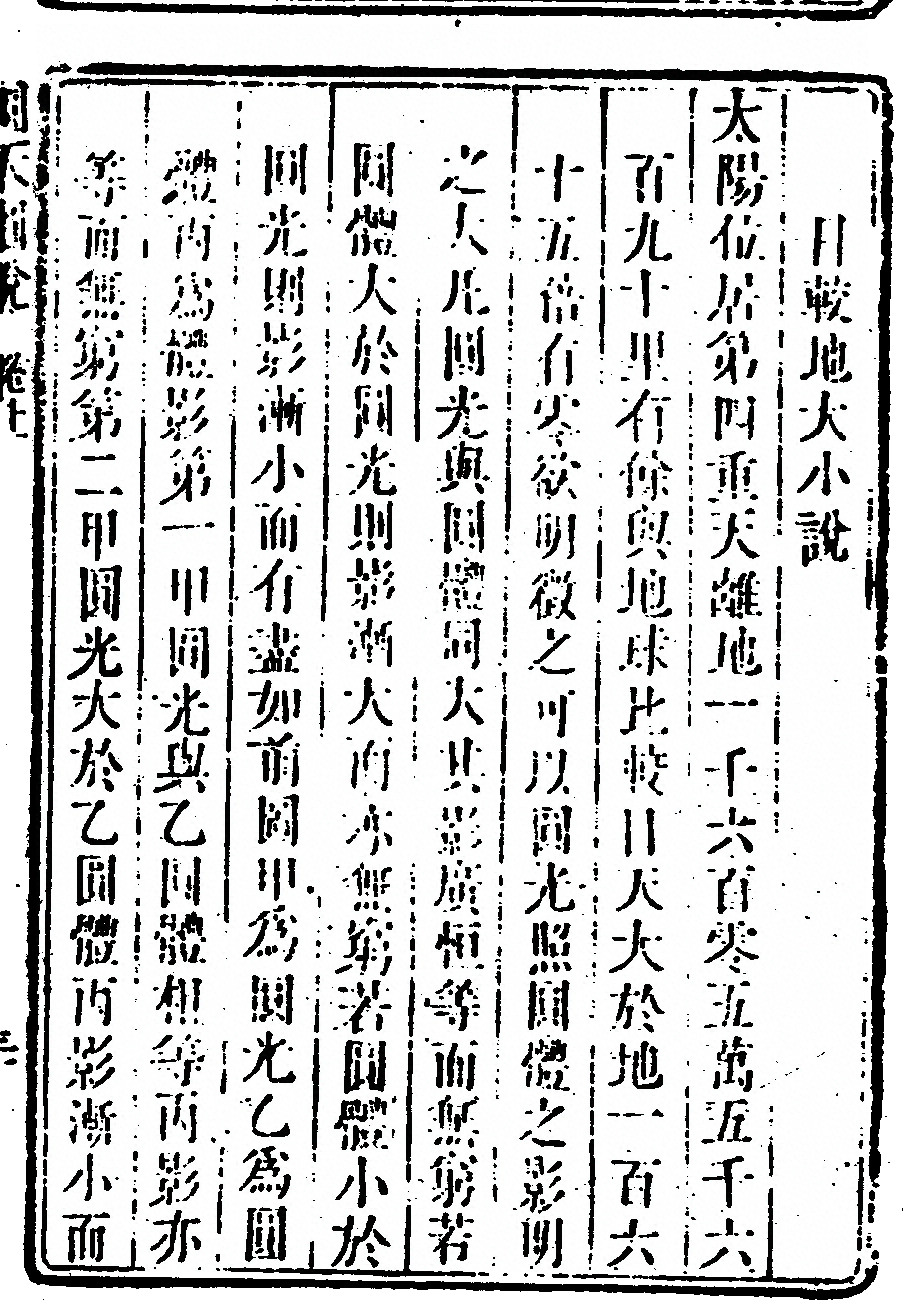 日較地大小說
太陽位居第四重天離地一千六百零五萬五千六
百九十里有餘與地球比較日天大於地一百六
十五倍有零欲明徵之可以圓光照圓體之影明
之大凡圓光與圓體同大其影廣恒等而無窮若
圓體大於圓光則影漸大而亦無窮若圓體小於
圓光則影漸小而有盡如前圖甲爲圓光乙爲圓
體丙爲體影第一甲圓光與乙圓體相等丙影亦
等而無窮第二甲圓光大於乙圓體丙影漸小而